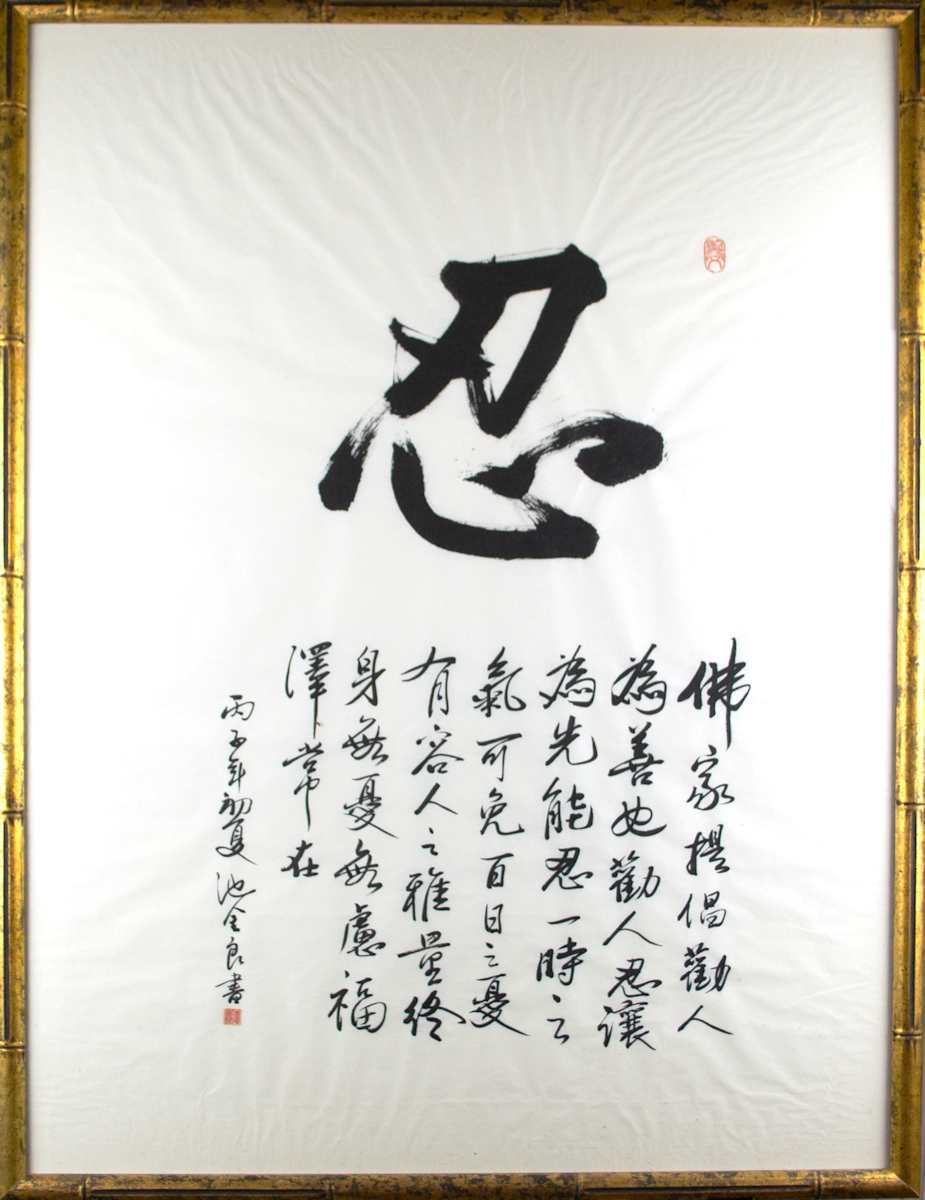 忍
佛家提倡勸人
為善也勸人忍讓
為先能忍一時之
氣可免百日之憂
有容人之雅量終
身無憂無慮福
澤常在
丙子年初夏池全良書